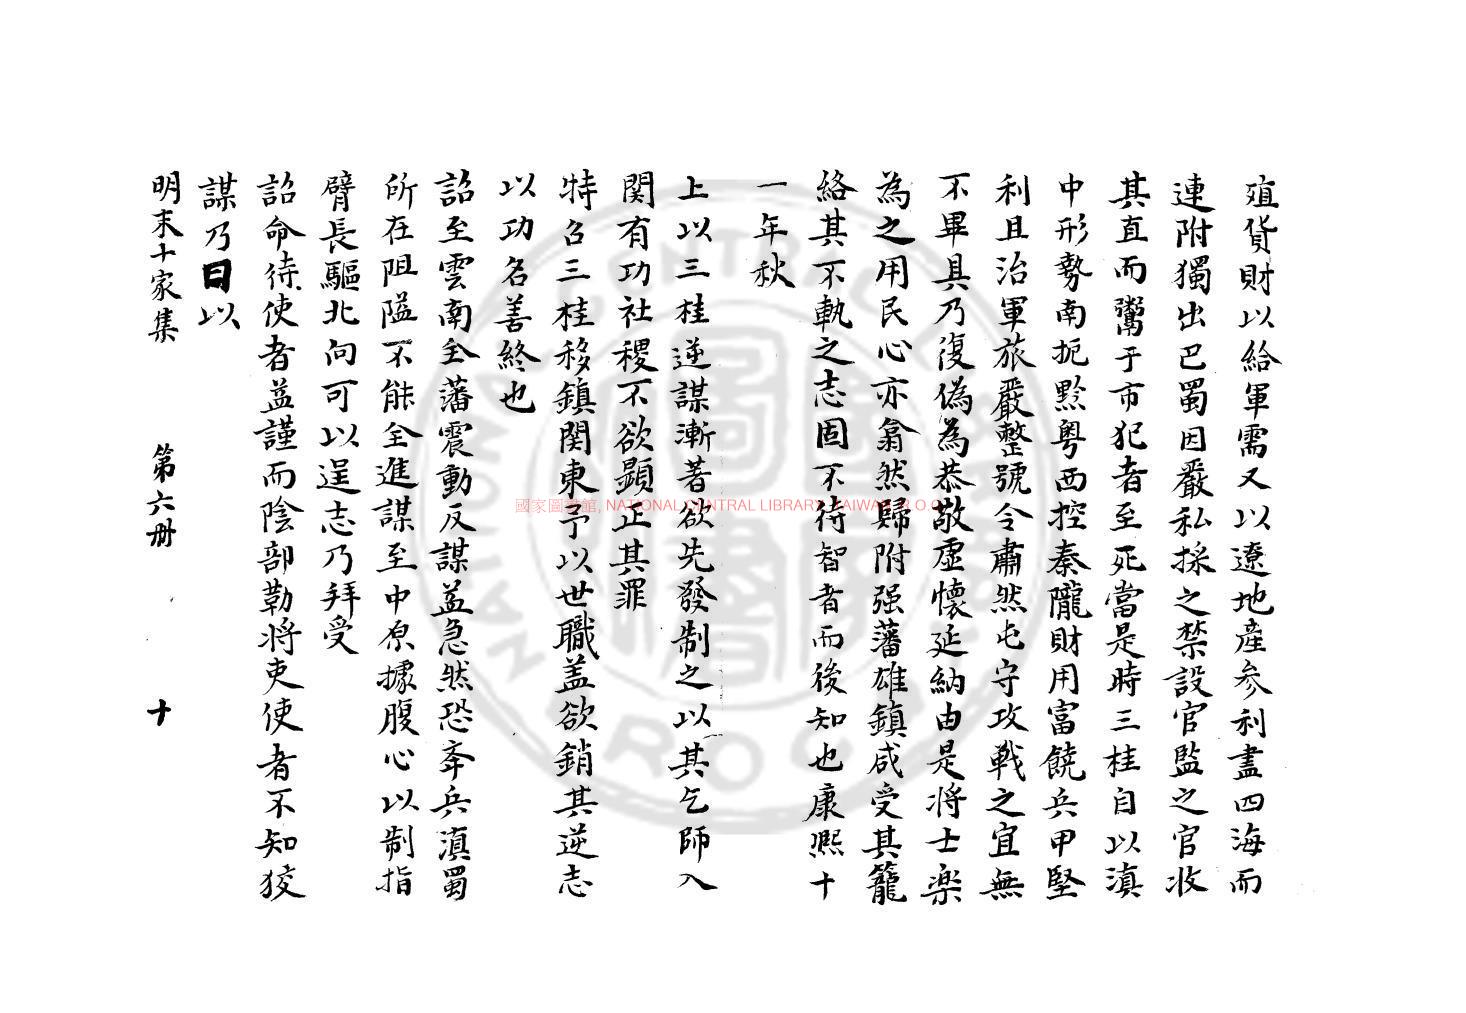 殖貨財以給軍需又以遼地產参利盡四海而
連附獨出巴蜀因嚴私採之禁設官監之官收
其直而鬻于市犯者至死當是時三桂自以滇
中形勢南扼黔粵西控秦隴財用富饒兵甲堅
利且治軍旅嚴整號令肅然屯守攻戰之宜無
不畢具乃復偽為恭敬虛懷延納由是将士楽
為之用民心亦翕然歸附强藩雄鎮咸受其籠
絡其不軌之志固不待智者而後知也康熈十
一年秋
上以三桂逆謀漸著欲先發制之以其乞師入
関有功社稷不欲顕正其罪
特召三桂移鎮関東予以世職盖欲銷其逆志
以功名善終也
詔至雲南全藩震動反謀益急然恐夲兵滇蜀
所在阻隘不能全進謀至中原據腹心以制指
臂長驅北向可以逞志乃拜受
詔命待使者益謹而陰部勒将吏使者不知狡
謀乃日以
明末十家集 第六册 十
國家圖書館, NATIONAL CENTRAL LIBRARY, TAIWAN (R.O.C)
NATIONAL CENTRAL LIBRARY R.O.C.